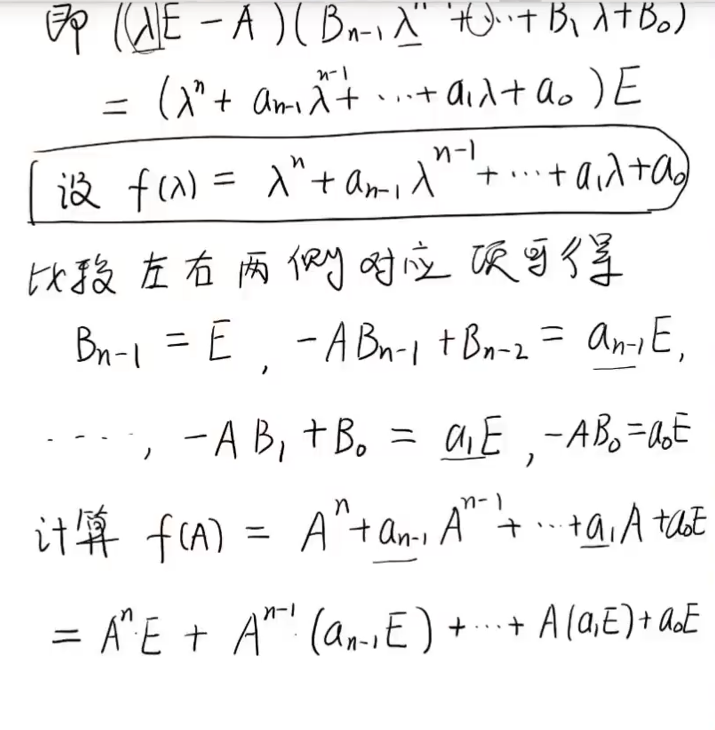 即 (λE - A)(Bₙ₋₁λⁿ⁻¹+⋯+B₁λ+B₀)
= (λⁿ + aₙ₋₁λⁿ⁻¹+ ⋯+ a₁λ+a₀)E
设 f(λ) = λⁿ+aₙ₋₁λⁿ⁻¹+⋯+a₁λ+a₀
比较左右两侧对应项可得
Bₙ₋₁ = E, -ABₙ₋₁+Bₙ₋₂ = aₙ₋₁E,
⋯⋯, -AB₁+B₀ = a₁E, -AB₀=a₀E
计算 f(A) = Aⁿ+aₙ₋₁Aⁿ⁻¹+⋯+a₁A+a₀E
= AⁿE + Aⁿ⁻¹(aₙ₋₁E)+⋯+ A(a₁E)+a₀E